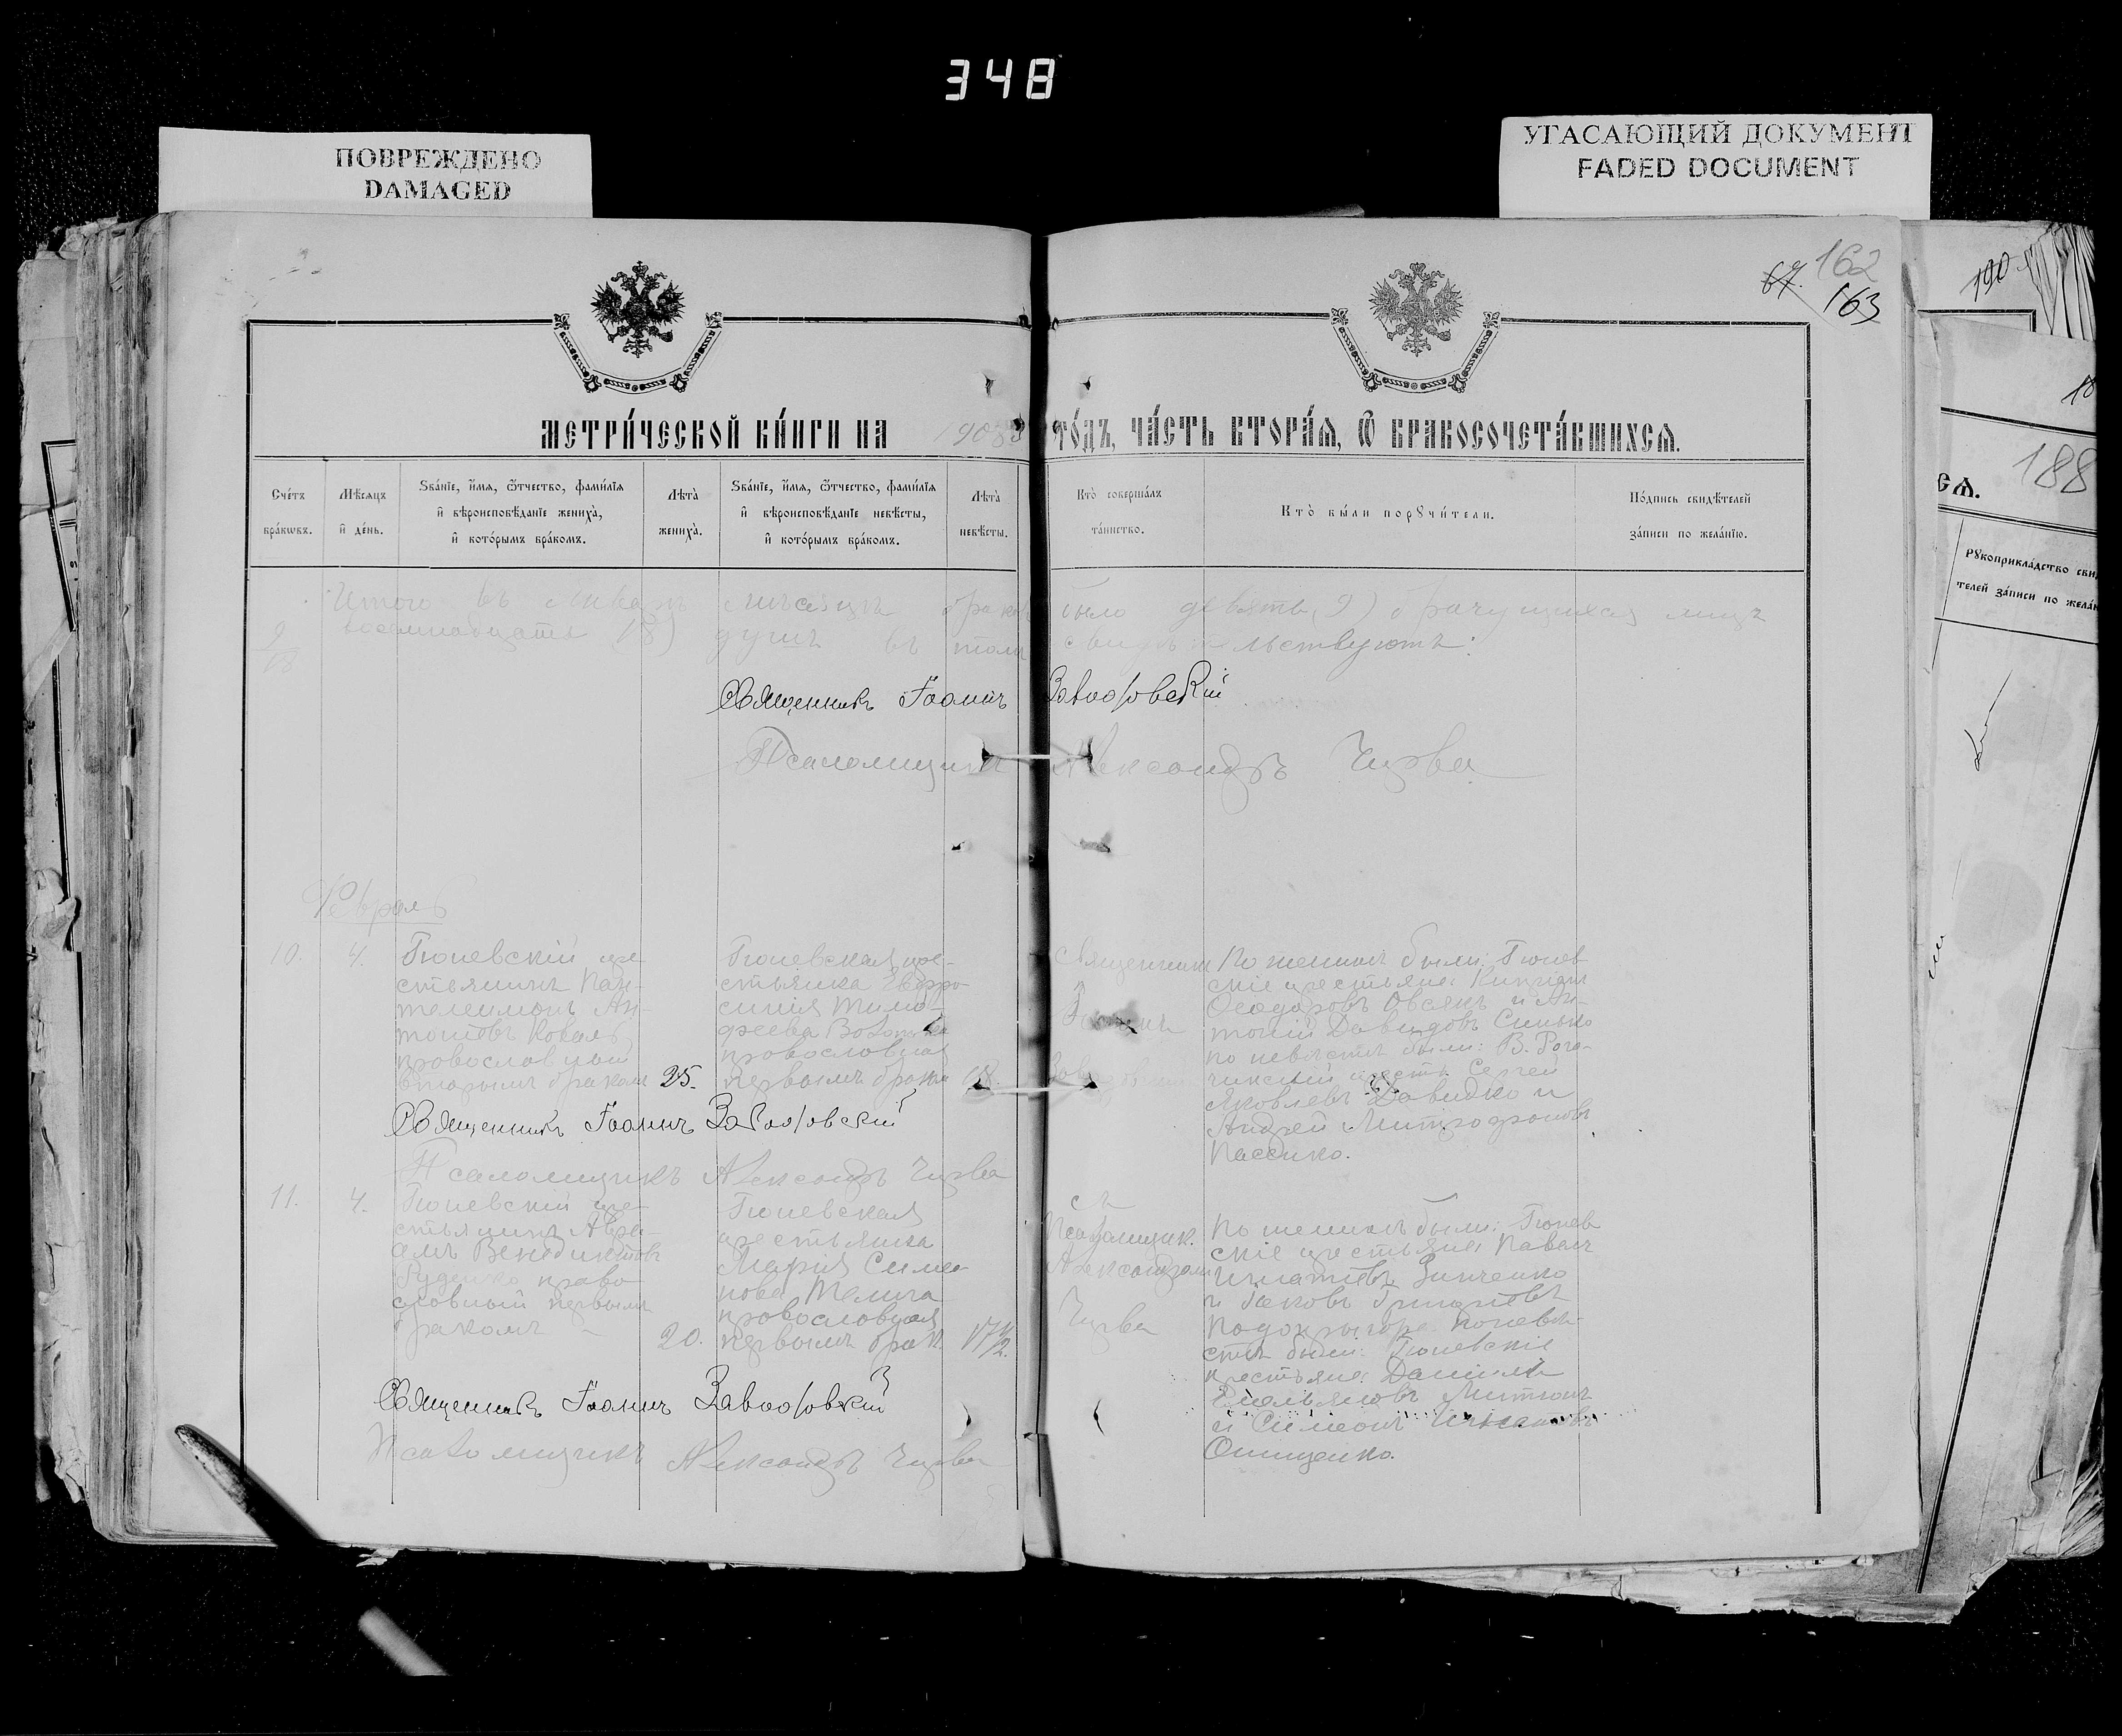 348
ПОВРЕЖДЕНО
DAMAGED
УГАСАЮЩИЙ ДОКУМЕНТ
FADED DOCUMENT
67. 162
163
190
188
МЕТРИ́ЧЕСКОЙ КНИ́ГИ НА 1908 ГО́ДЪ, ЧА́СТЬ ВТОРА́Ѧ, Ѿ БРАКОСОЧЕТА́ВШИХСѦ.
Сче́тъ бра́кѡвъ.
Мѣ́сѧцъ и҆ де́нь.
Ѕва́нїе, и҆́мѧ, ѻ҆́тчество, фами́лїѧ
и҆ вѣроисповѣ́данїе жениха̀,
и҆ кото́рымъ бра́комъ.
Лѣ́та жениха̀.
Ѕва́нїе, и҆́мѧ, ѻ҆́тчество, фами́лїѧ
и҆ вѣроисповѣ́данїе невѣ́сты,
и҆ кото́рымъ бра́комъ.
Лѣ́та невѣ́сты.
Кто̀ соверша́лъ та́инство.
Кто̀ бы́ли порꙋчи́тели.
По́дпись свидѣ́телей
за́писи по жела́нїю.
Итого въ Январѣ мѣсяцѣ браковъ было девять (9) брачущихся лицъ
восемнадцать (18) душъ въ томъ свидѣтельствуютъ:
9
18
Священникъ Іоаннъ Заводовскій
Псаломщикъ Александръ Чирва
Февраль
10.
4.
Тюневскій кре-
стьянинъ Пан-
телеимонъ Ан-
тоновъ Коваль
православный
вторымъ бракомъ
25.
Тюневская кре-
стьянка Евфро-
синія Тимо-
феева
православная
первымъ бракомъ
18.
Священникъ
Іоаннъ
Заводовскій
По женихѣ были: Тюнев
скіе крестьяне: Кипріанъ
Феодоровъ Овсякъ и Ан-
тоній Давидовъ Синько
по невѣстѣ были: В. Рога-
чикскій крест. Сергей
Яковлевъ Давидко и
Андрей Митрофановъ
Пассико.
Священникъ Іоаннъ Заводовскій
Псаломщикъ Александръ Чирва
11.
4.
Тюневскій кре-
стьянинъ Авра-
амъ Венедиктовъ
Руденко право
славный первымъ
бракомъ
20.
Тюневская
крестьянка
Марія Симео
нова Телига
православная
первымъ брак.
17 1/2.
съ
Псаломщик.
Александромъ
Чирва
По женихѣ были: Тюнев
скіе крестьяне: Павелъ
Игнатіевъ Зинченко
и Іаковъ Григоріевъ
Подопригора по невѣ-
стѣ были: Тюневскіе
крестьяне: Даніилъ
Емельяновъ Митюнъ
и Симеонъ Игнатовъ
Онищенко.
Священникъ Іоаннъ Заводовскій
Псаломщикъ Александръ Чирва
СѦ.
Рꙋкоприкла́дство сви
телей за́писи по жела́